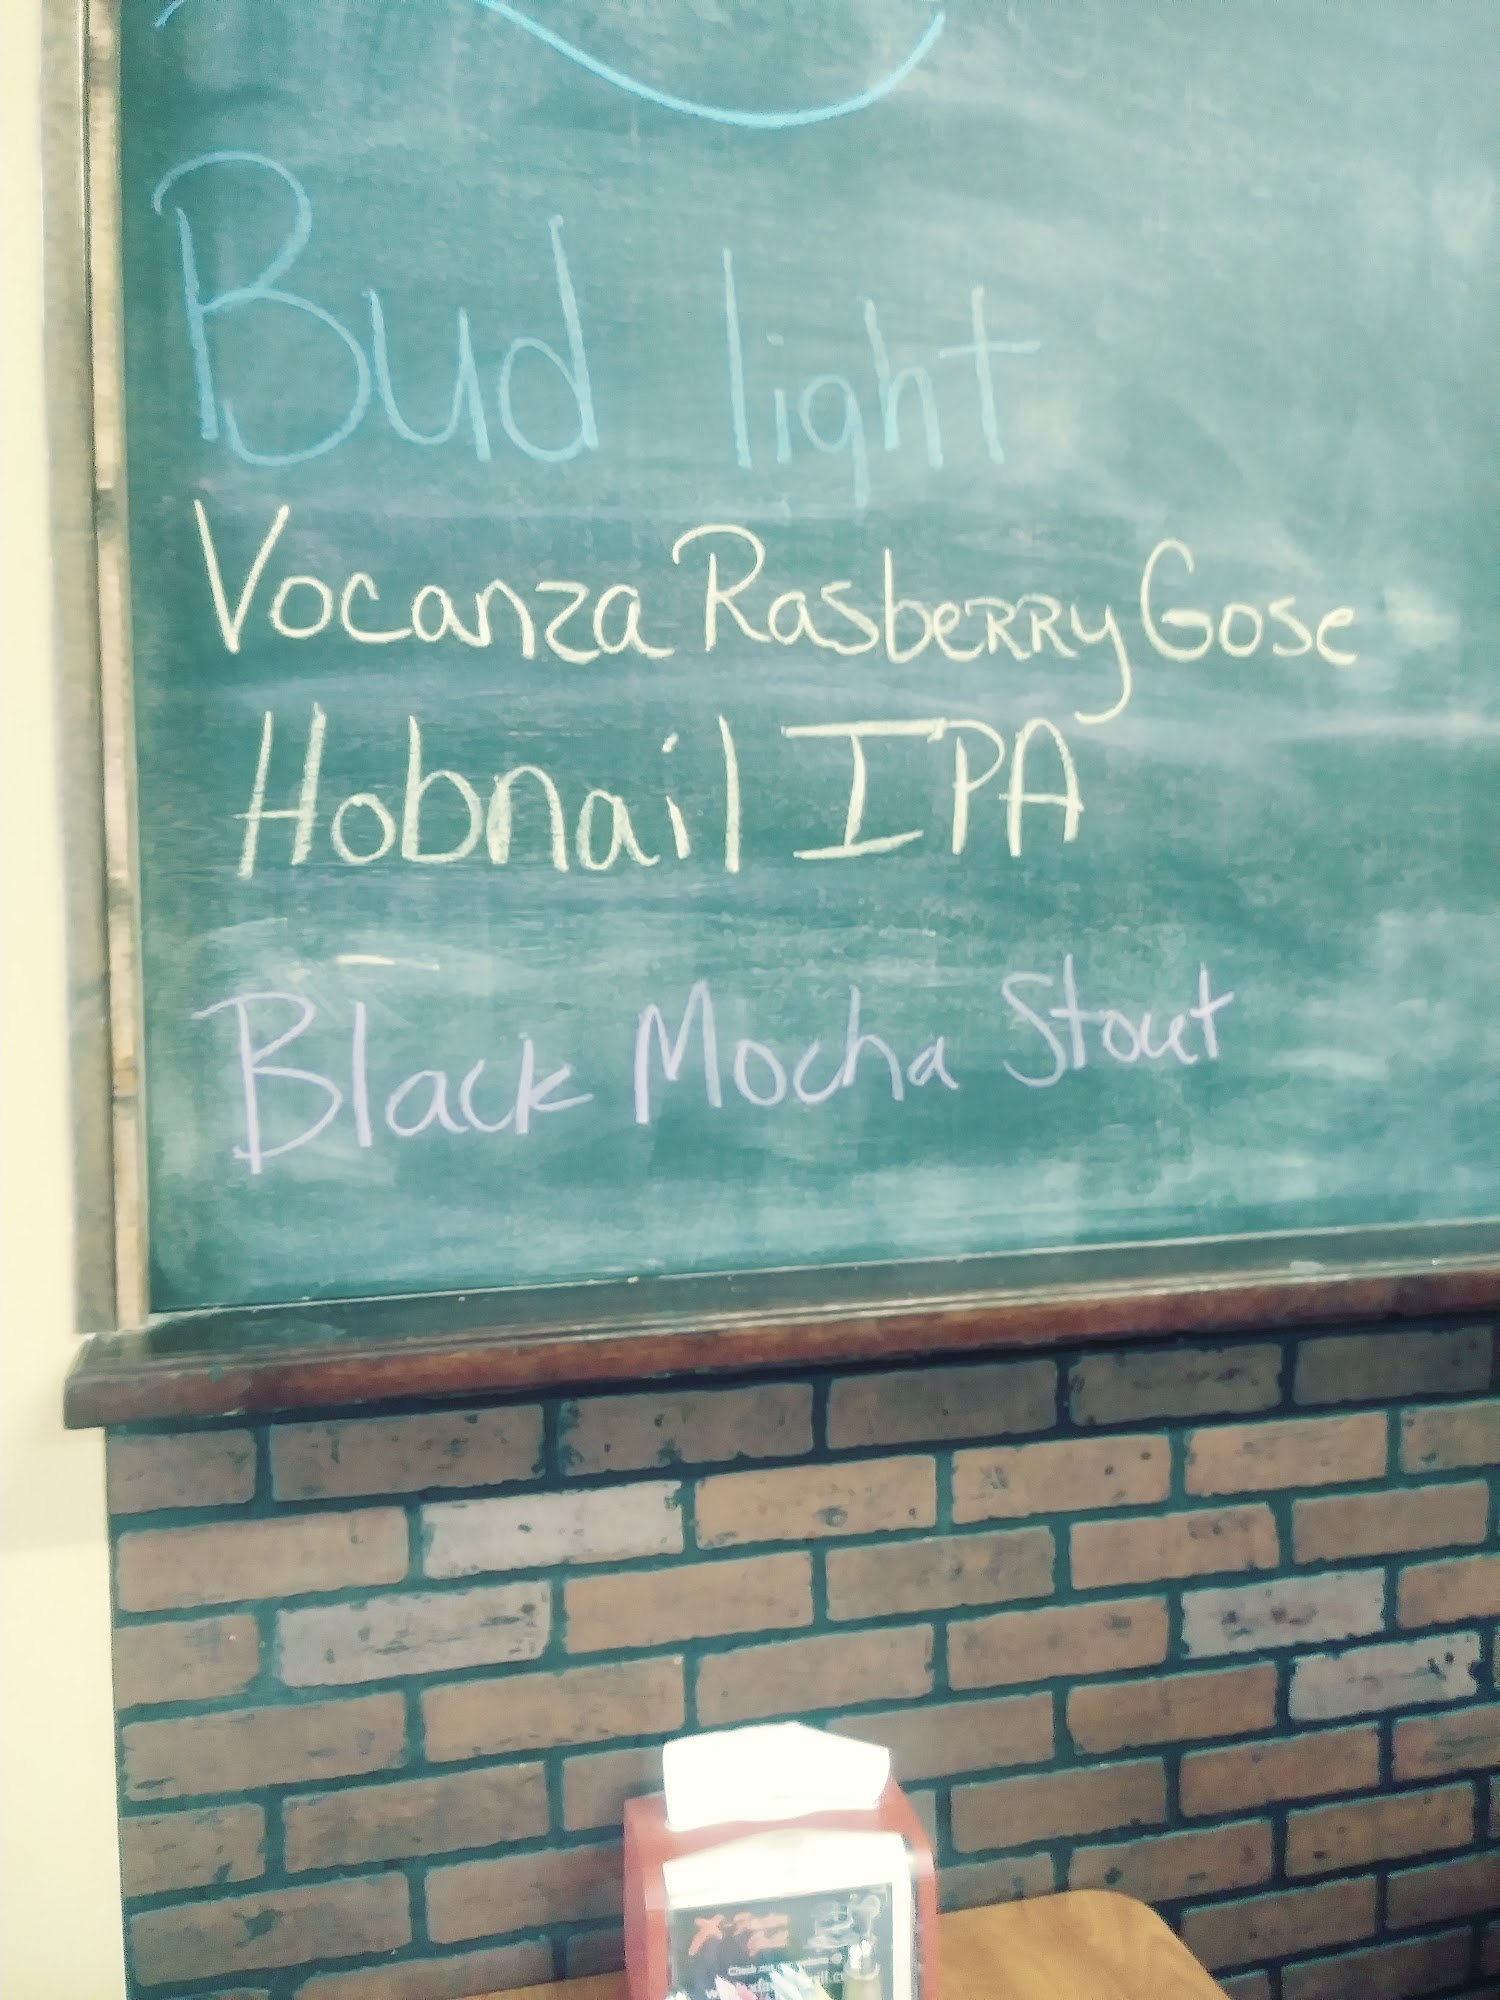 Bud light
Vocanza Rasberry Gose
Hobnail IPA
Black Mocha Stout
Check out our